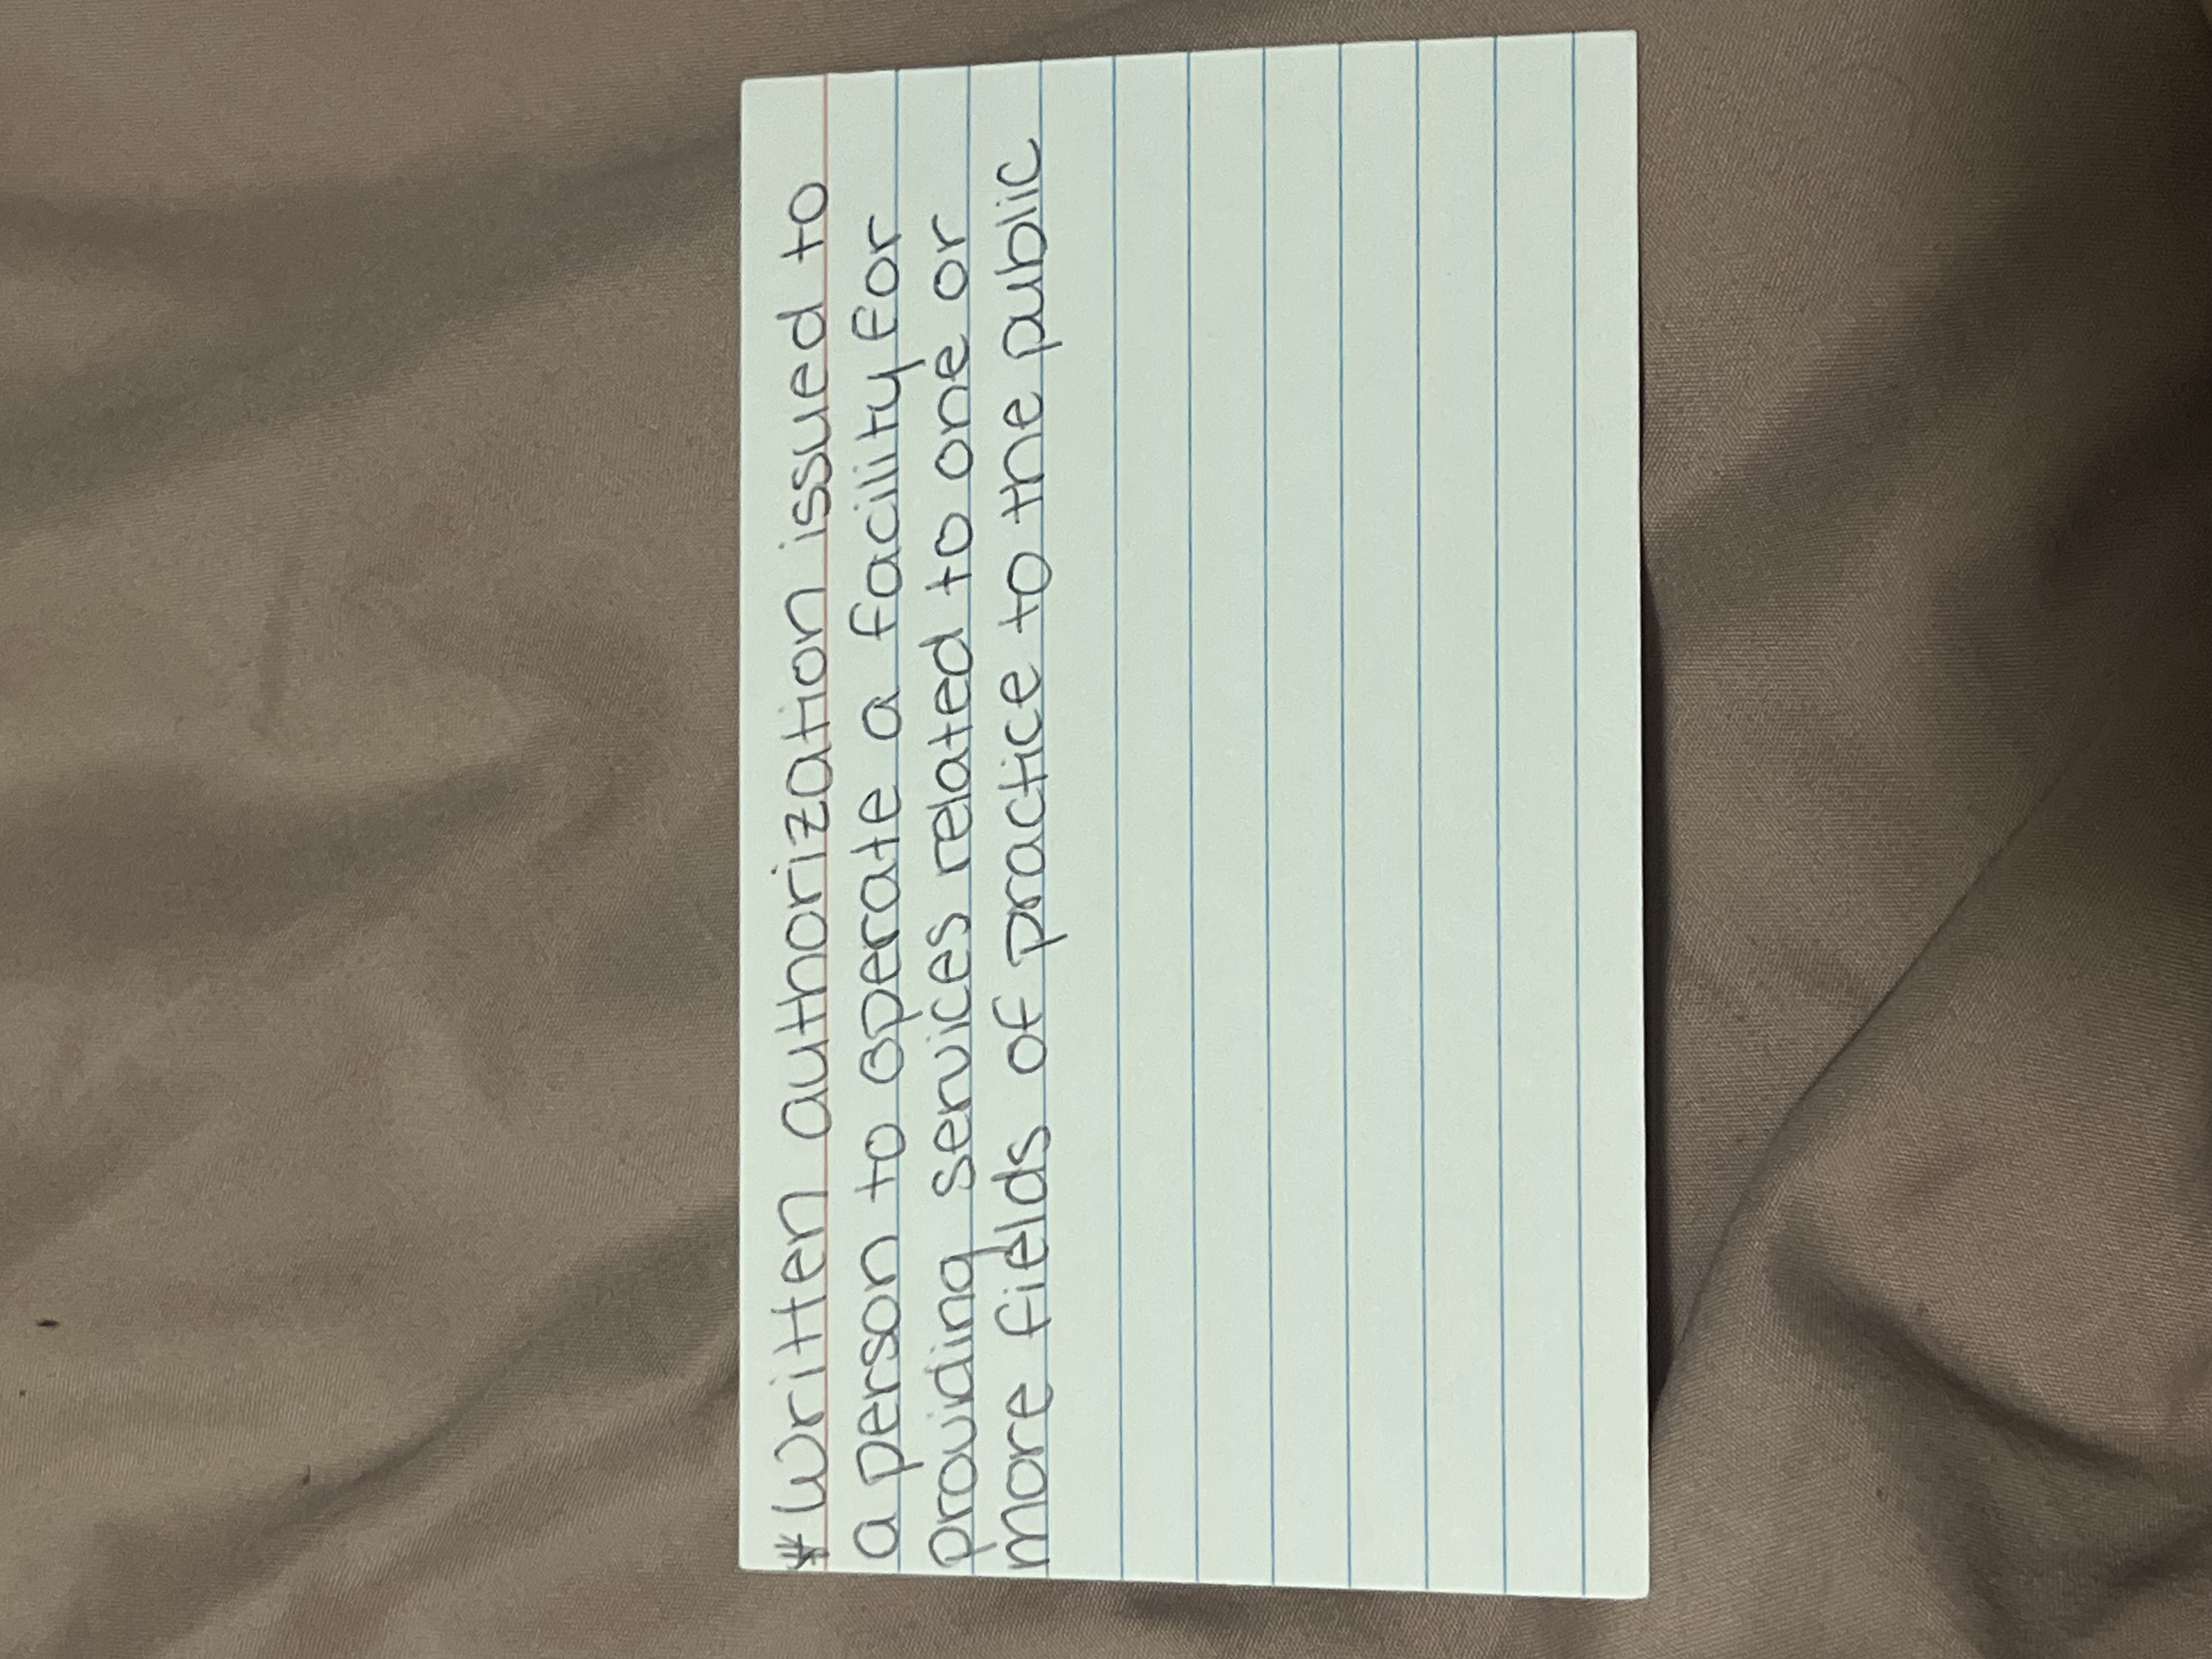 *Written authorization issued to
a person to operate a facility for
providing services related to one or
more fields of practice to the public